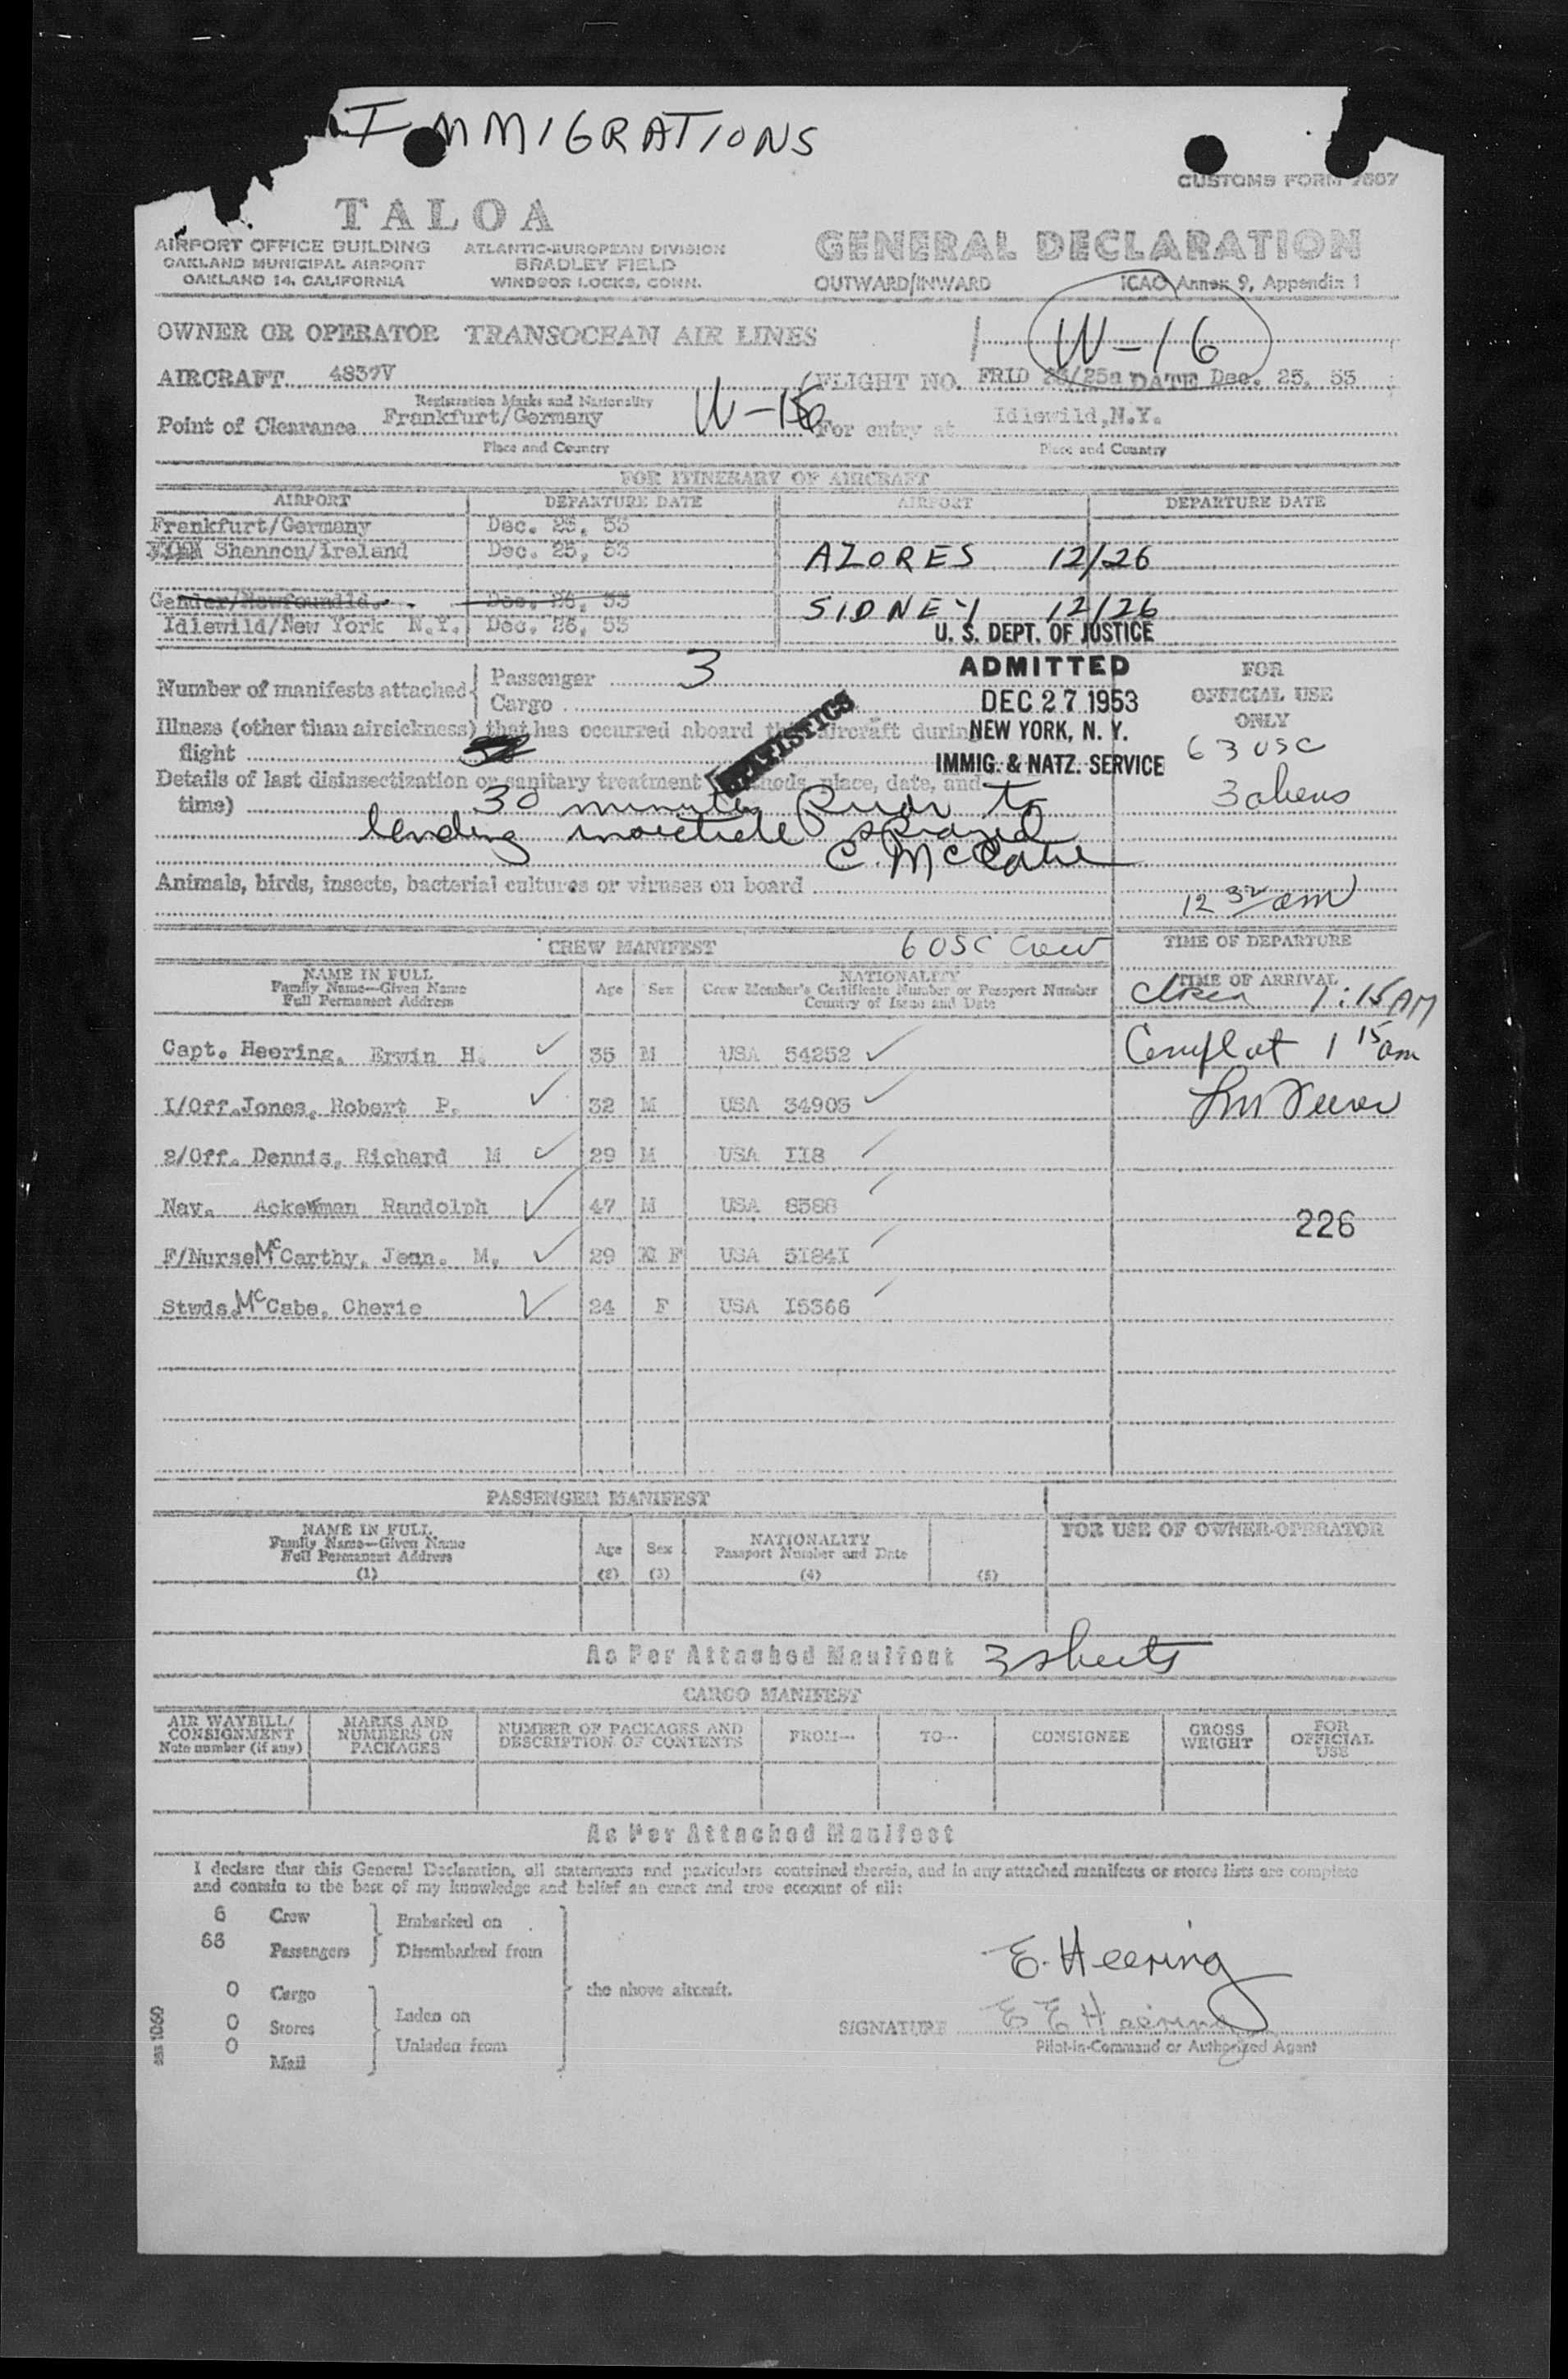 IMMIGRATIONS
CUSTOMS FORM 7507
TALOA
AIRPORT OFFICE BUILDING
OAKLAND MUNICIPAL AIRPORT
OAKLAND 14, CALIFORNIA
ATLANTIC-EUROPEAN DIVISION
BRADLEY FIELD
WINDSOR LOCKS, CONN.
GENERAL DECLARATION
OUTWARD/INWARD
ICAO Annex 9, Appendix 1
OWNER OR OPERATOR TRANSOCEAN AIR LINES
W-16
AIRCRAFT 4839V
FLIGHT NO. FRID 25/25a DATE Dec. 25, 53
Registration Marks and Nationality
Point of Clearance Frankfurt/Germany
W-16
For entry at Idlewild,N.Y.
Place and Country
Place and Country
FOR ITINERARY OF AIRCRAFT
AIRPORT DEPARTURE DATE AIRPORT DEPARTURE DATE
Frankfurt/Germany Dec. 25, 53
Shannon/Ireland Dec. 25, 53 AZORES 12/26
Gander/Newfoundld. Dec. 26, 53 SIDNEY 12/26
Idlewild/New York N.Y. Dec. 26, 53
U. S. DEPT. OF JUSTICE
ADMITTED
DEC 27 1953
NEW YORK, N. Y.
IMMIG. & NATZ. SERVICE
Number of manifests attached
Passenger 3
Cargo
FOR
OFFICIAL USE
ONLY
STATISTICS
Illness (other than airsickness) that has occurred aboard this aircraft during
flight
63 USC
Details of last disinsectization or sanitary treatment (methods, place, date, and
time) 30 minutes Prior to
3 aliens
landing insecticide sprayed
C. McCabe
Animals, birds, insects, bacterial cultures or viruses on board
12 32 am
CREW MANIFEST
6 USC Crew
TIME OF DEPARTURE
NAME IN FULL
Family Name—Given Name
Full Permanent Address
Age
Sex
NATIONALITY
Crew Member's Certificate Number or Passport Number
Country of Issue and Date
TIME OF ARRIVAL
1:15 AM
Capt. Heering, Erwin H. 35 M USA 34252
1 15 am
I/Off.Jones, Robert P. 32 M USA 34903
2/Off. Dennis, Richard M 29 M USA II8
Nav. Ackerman Randolph 47 M USA 8588
226
F/Nurse McCarthy, Jean. M. 29 F USA 5I84I
Stwds. McCabe, Cherie 24 F USA I5366
PASSENGER MANIFEST
NAME IN FULL
Family Name—Given Name
Full Permanent Address
(1)
Age
(2)
Sex
(3)
NATIONALITY
Passport Number and Date
(4)
(5)
FOR USE OF OWNER-OPERATOR
As Per Attached Manifest 3 sheets
CARGO MANIFEST
AIR WAYBILL/
CONSIGNMENT
Note number (if any)
MARKS AND
NUMBERS ON
PACKAGES
NUMBER OF PACKAGES AND
DESCRIPTION OF CONTENTS
FROM—
TO—
CONSIGNEE
GROSS
WEIGHT
FOR
OFFICIAL
USE
As Per Attached Manifest
I declare that this General Declaration, all statements and particulars contained therein, and in any attached manifests or stores lists are complete
and contain to the best of my knowledge and belief an exact and true account of all:
6 Crew
66 Passengers
Embarked on
Disembarked from
0 Cargo
0 Stores
0 Mail
Laden on
Unladen from
the above aircraft.
E. Heering
SIGNATURE E E Heering
Pilot-in-Command or Authorized Agent